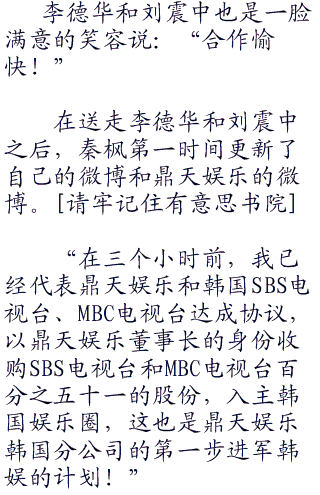 李德华和刘震中也是一脸
满意的笑容说：“合作愉
快！”
在送走李德华和刘震中
之后，秦枫第一时间更新了
自己的微博和鼎天娱乐的微
博。[请牢记住有意思书院]
“在三个小时前，我已
经代表鼎天娱乐和韩国SBS电
视台、MBC电视台达成协议，
以鼎天娱乐董事长的身份收
购SBS电视台和MBC电视台百
分之五十一的股份，入主韩
国娱乐圈，这也是鼎天娱乐
韩国分公司的第一步进军韩
娱的计划！”